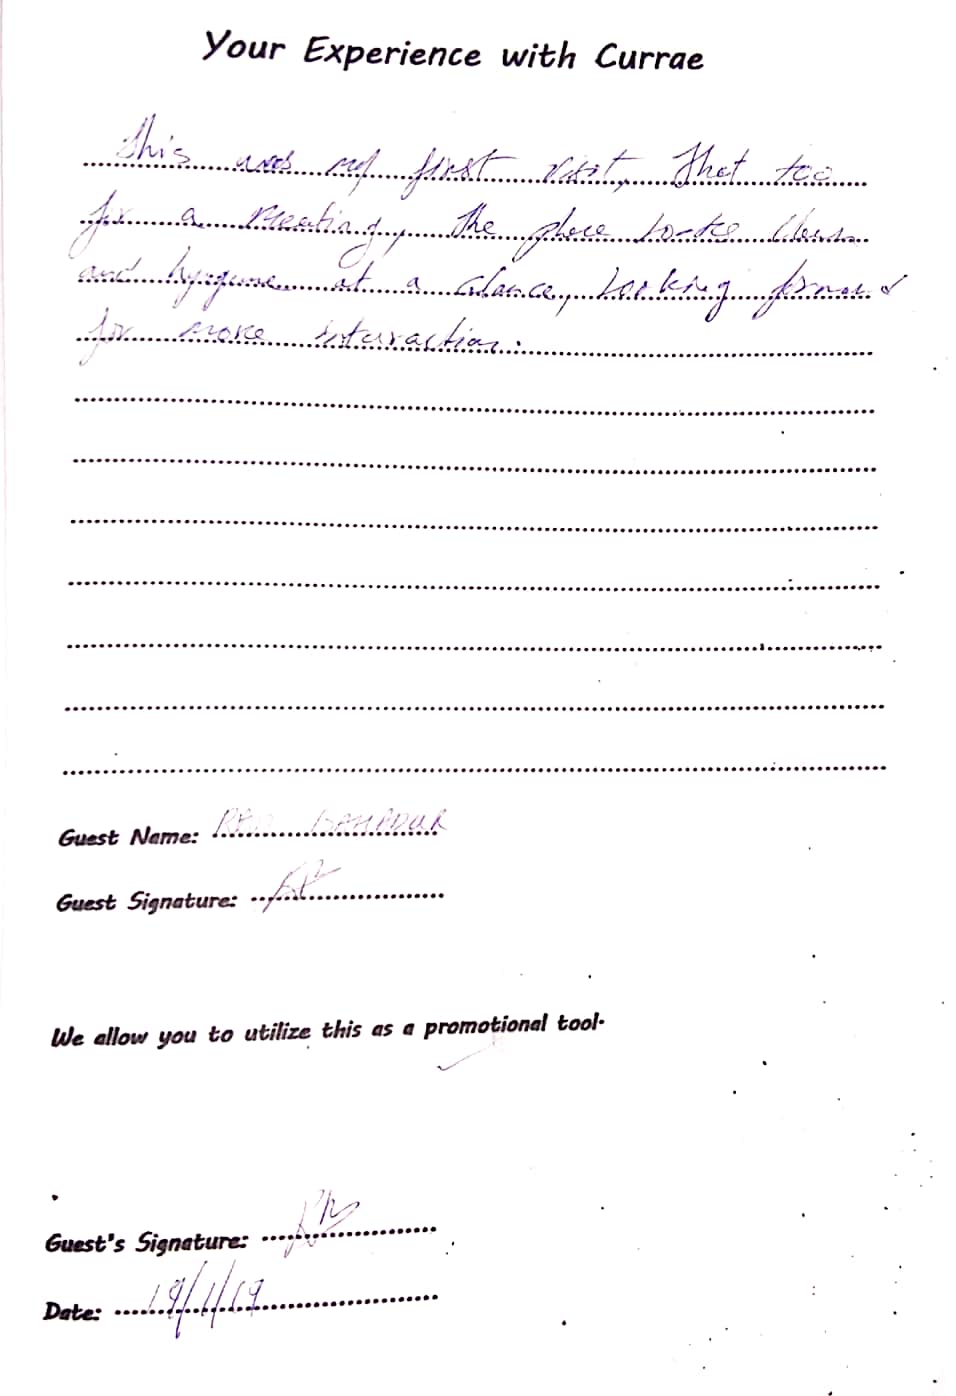 Your Experience with Currae
This was my first visit, That too
for a Meeting, the place looks clean
and hygeine at a Glance, Looking forward
for more interraction.
Guest Name: BAHADUR
Guest Signature:
We allow you to utilize this as a promotional tool.
Guest's Signature:
Date: 19/1/19